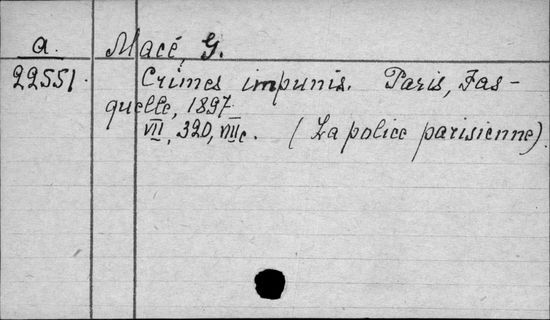 a. Macé, G.
22551. Crimes impunis. Paris, Fas-
quelle, 1897
VII, 320, VIIIc. (La police parisienne).